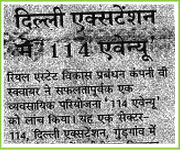 दिल्ली एक्सटेंशन
में '114 एवेन्यू'
रियल एस्टेट विकास प्रबंधन कंपनी वी
स्क्वायर ने सफलतापूर्वक एक
व्यवसायिक परियोजना '114 एवेन्यू'
को लांच किया। यह एक सेक्टर-
114, दिल्ली एक्सटेंशन, गुड़गांव में